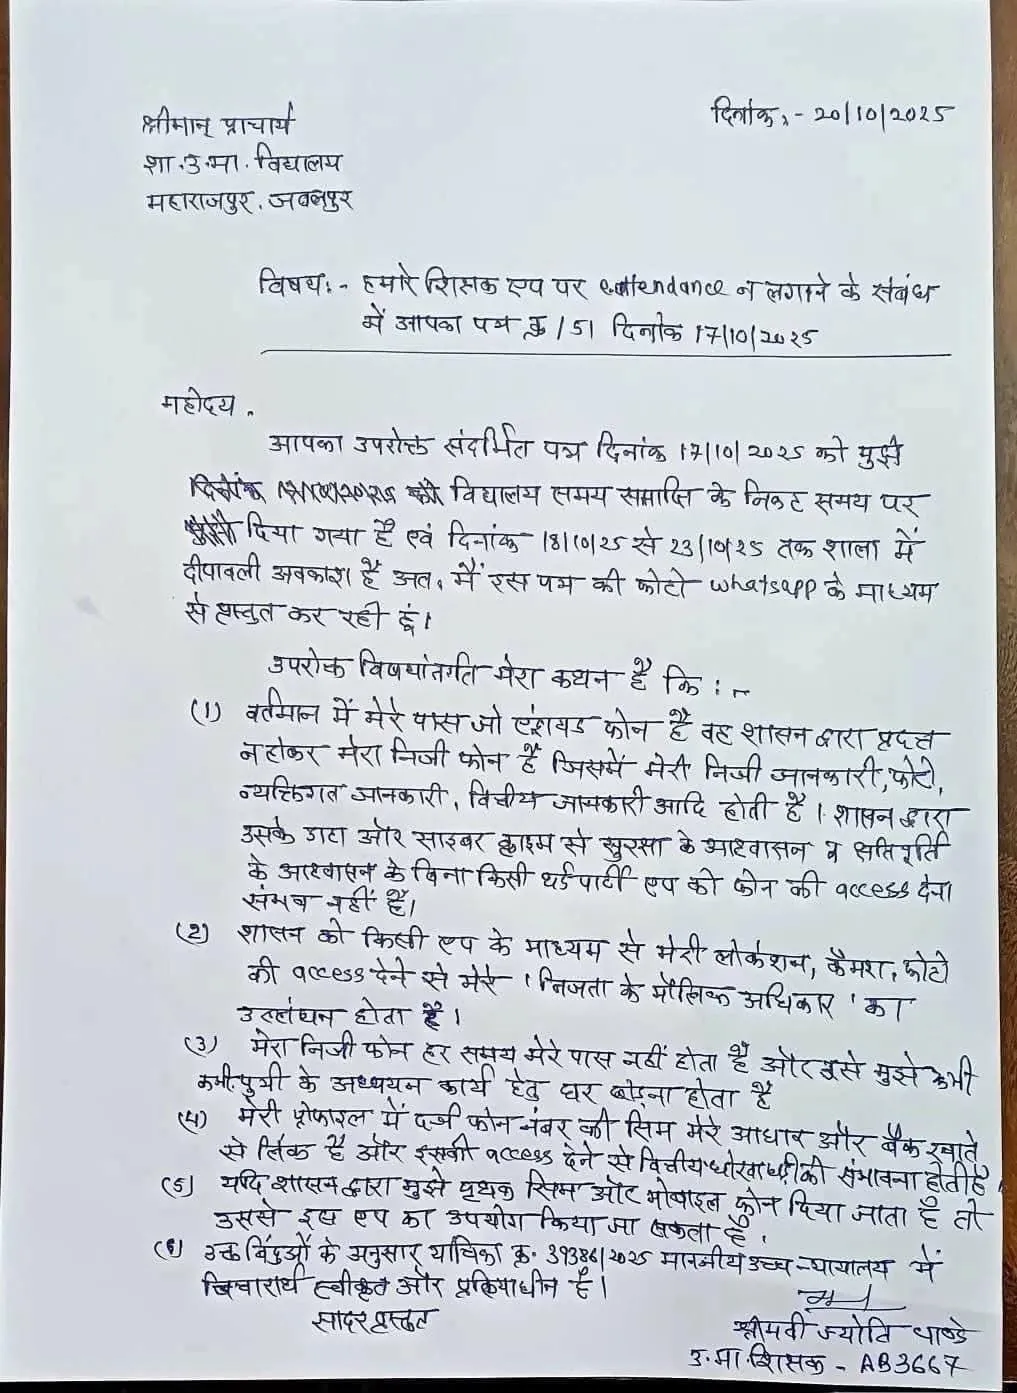 दिनांक :- 20/10/2025
श्रीमान् प्राचार्य
शा.उ.मा. विद्यालय
महाराजपुर, जबलपुर
विषय :- हमारे शिक्षक एप पर eattendance न लगाने के संबंध
में आपका पत्र क्र/51 दिनांक 17/10/2025
महोदय,
आपका उपरोक्त संदर्भित पत्र दिनांक 17/10/2025 को मुझे
विद्यालय समय समाप्ति के निकट समय पर
दिया गया है एवं दिनांक 18/10/25 से 23/10/25 तक शाला में
दीपावली अवकाश है अत, मैं इस पत्र की फोटो whatsapp के माध्यम
से प्रस्तुत कर रही हूं।
उपरोक्त विषयांतर्गत मेरा कथन है कि :-
(1) वर्तमान में मेरे पास जो एंड्रायड फोन है वह शासन द्वारा प्रदत्त
न होकर मेरा निजी फोन है जिसमें मेरी निजी जानकारी, फोटो,
व्यक्तिगत जानकारी, वित्तीय जानकारी आदि होती है। शासन द्वारा
उसके डाटा और साइबर क्राइम से सुरक्षा के आश्वासन व क्षतिपूर्ति
के आश्वासन के बिना किसी थर्ड पार्टी एप को फोन की access देना
संभव नहीं है।
(2) शासन को किसी एप के माध्यम से मेरी लोकेशन, कैमरा, फोटो
की access देने से मेरे 'निजता के मौलिक अधिकार' का
उल्लंघन होता है।
(3) मेरा निजी फोन हर समय मेरे पास नहीं होता है और इसे मुझे कभी
कभी पुत्री के अध्ययन कार्य हेतु घर छोड़ना होता है
(4) मेरी प्रोफाइल में दर्ज फोन नंबर की सिम मेरे आधार और बैंक खाते
से लिंक है और इसकी access देने से वित्तीय धोखाधड़ी की संभावना होती है।
(5) यदि शासन द्वारा मुझे पृथक सिम और मोबाइल फोन दिया जाता है तो
उससे इस एप का उपयोग किया जा सकता है।
(6) उक्त बिंदुओं के अनुसार याचिका क्र. 39386/2025 माननीय उच्च न्यायालय में
विचारार्थ स्वीकृत और प्रक्रियाधीन है।
सादर प्रस्तुत
श्रीमती ज्योति पाण्डे
उ.मा.शिक्षक - AB3667